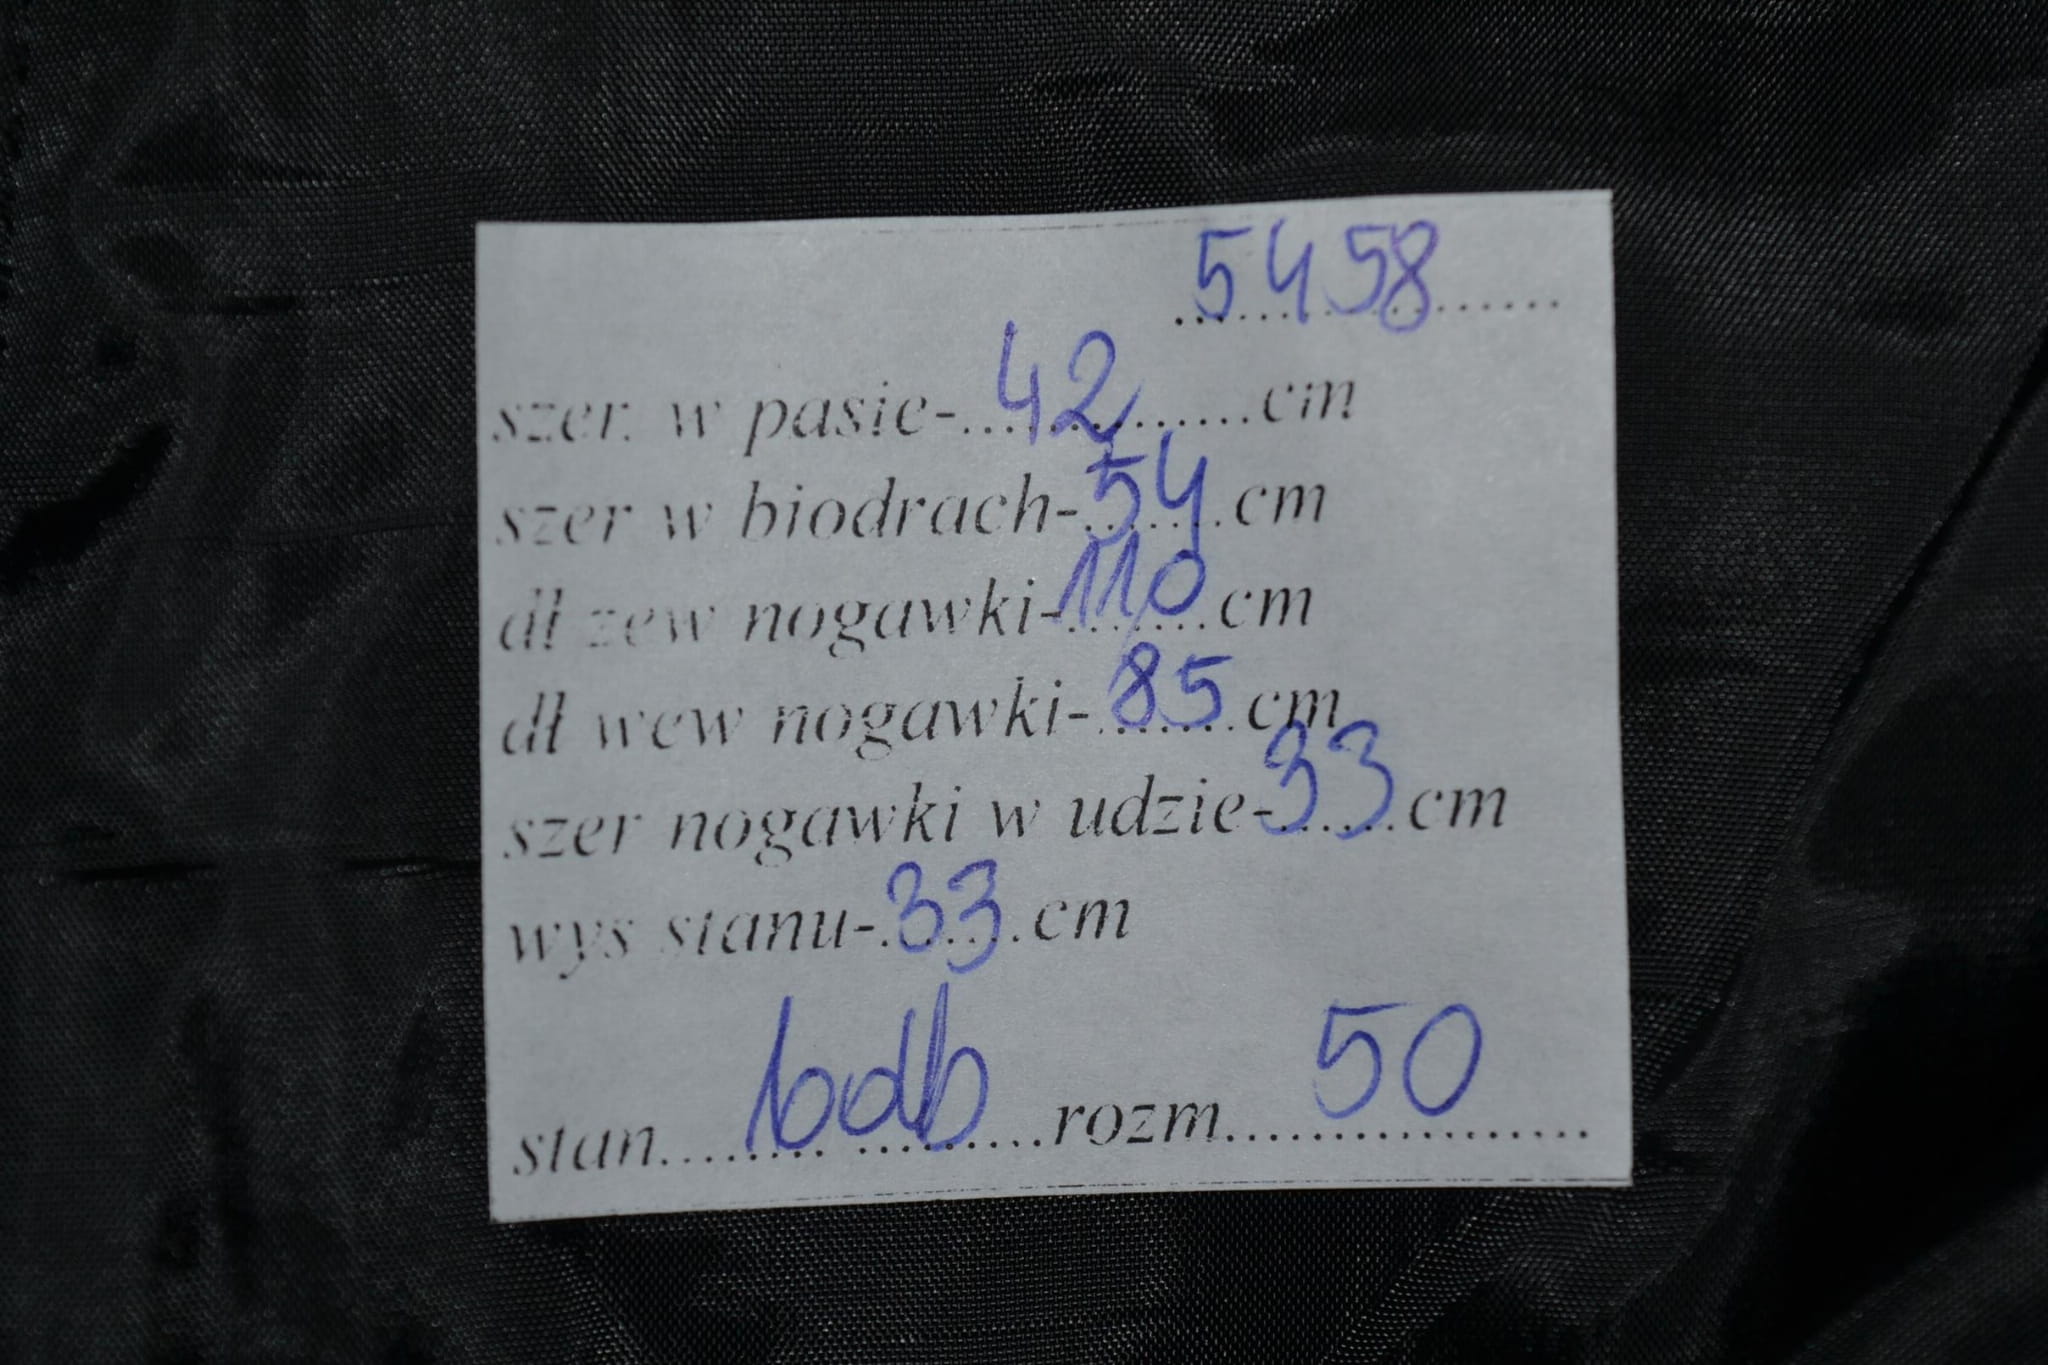 5458
szer. w pasie-...42...cm
szer w biodrach-54.cm
dł zew nogawki-110.cm
dł wew nogawki-85.cm
szer nogawki w udzie-33.cm
wys stanu-33.cm
stan....bdb....rozm....50....